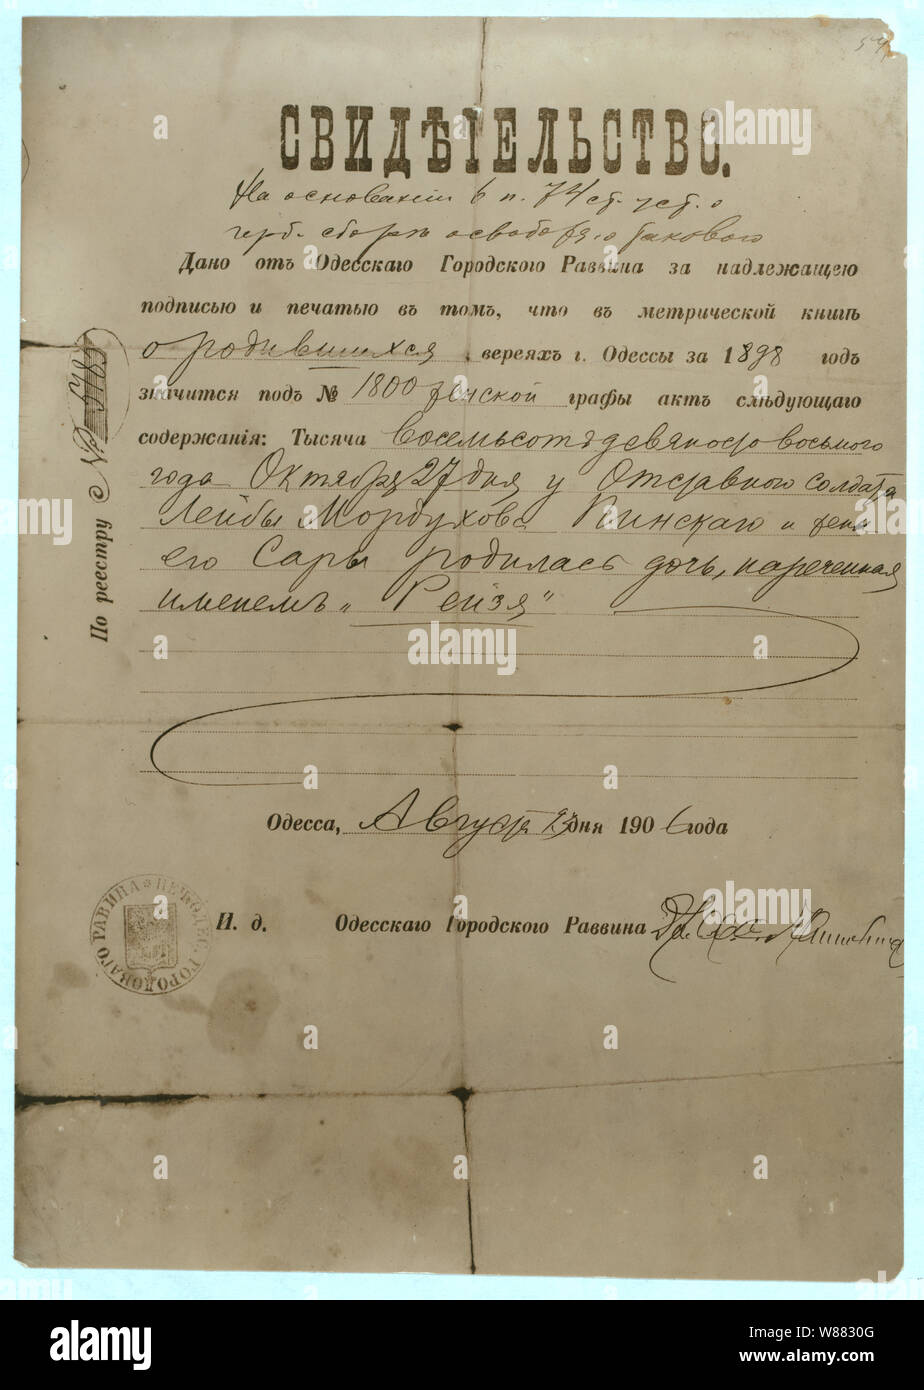 54
СВИДѢТЕЛЬСТВО.
На основаніи 6 п. 74 ст. уст. о
герб. сборѣ освобожд. о таковаго
Дано отъ Одесскаго Городского Раввина за надлежащею
подписью и печатью въ томъ, что въ метрической книгѣ
о родившихся евреяхъ г. Одессы за 1898 годъ
значится подъ № 1800 женской графы актъ слѣдующаго
содержанія: Тысяча восемьсотъ девяносто восьмого
года Октября 27 дня у Отставного солдата
Лейбы Мордухова Пинскаго и жены
его Сары родилась дочь, нареченная
именемъ „Рейзя"
По реестру №
Одесса, Августа 23 дня 1906 года
И. д. Одесскаго Городского Раввина
ГОРОДОВАГО РАВИНА
a alamy
alamy
Image ID: W8830G
www.alamy.com